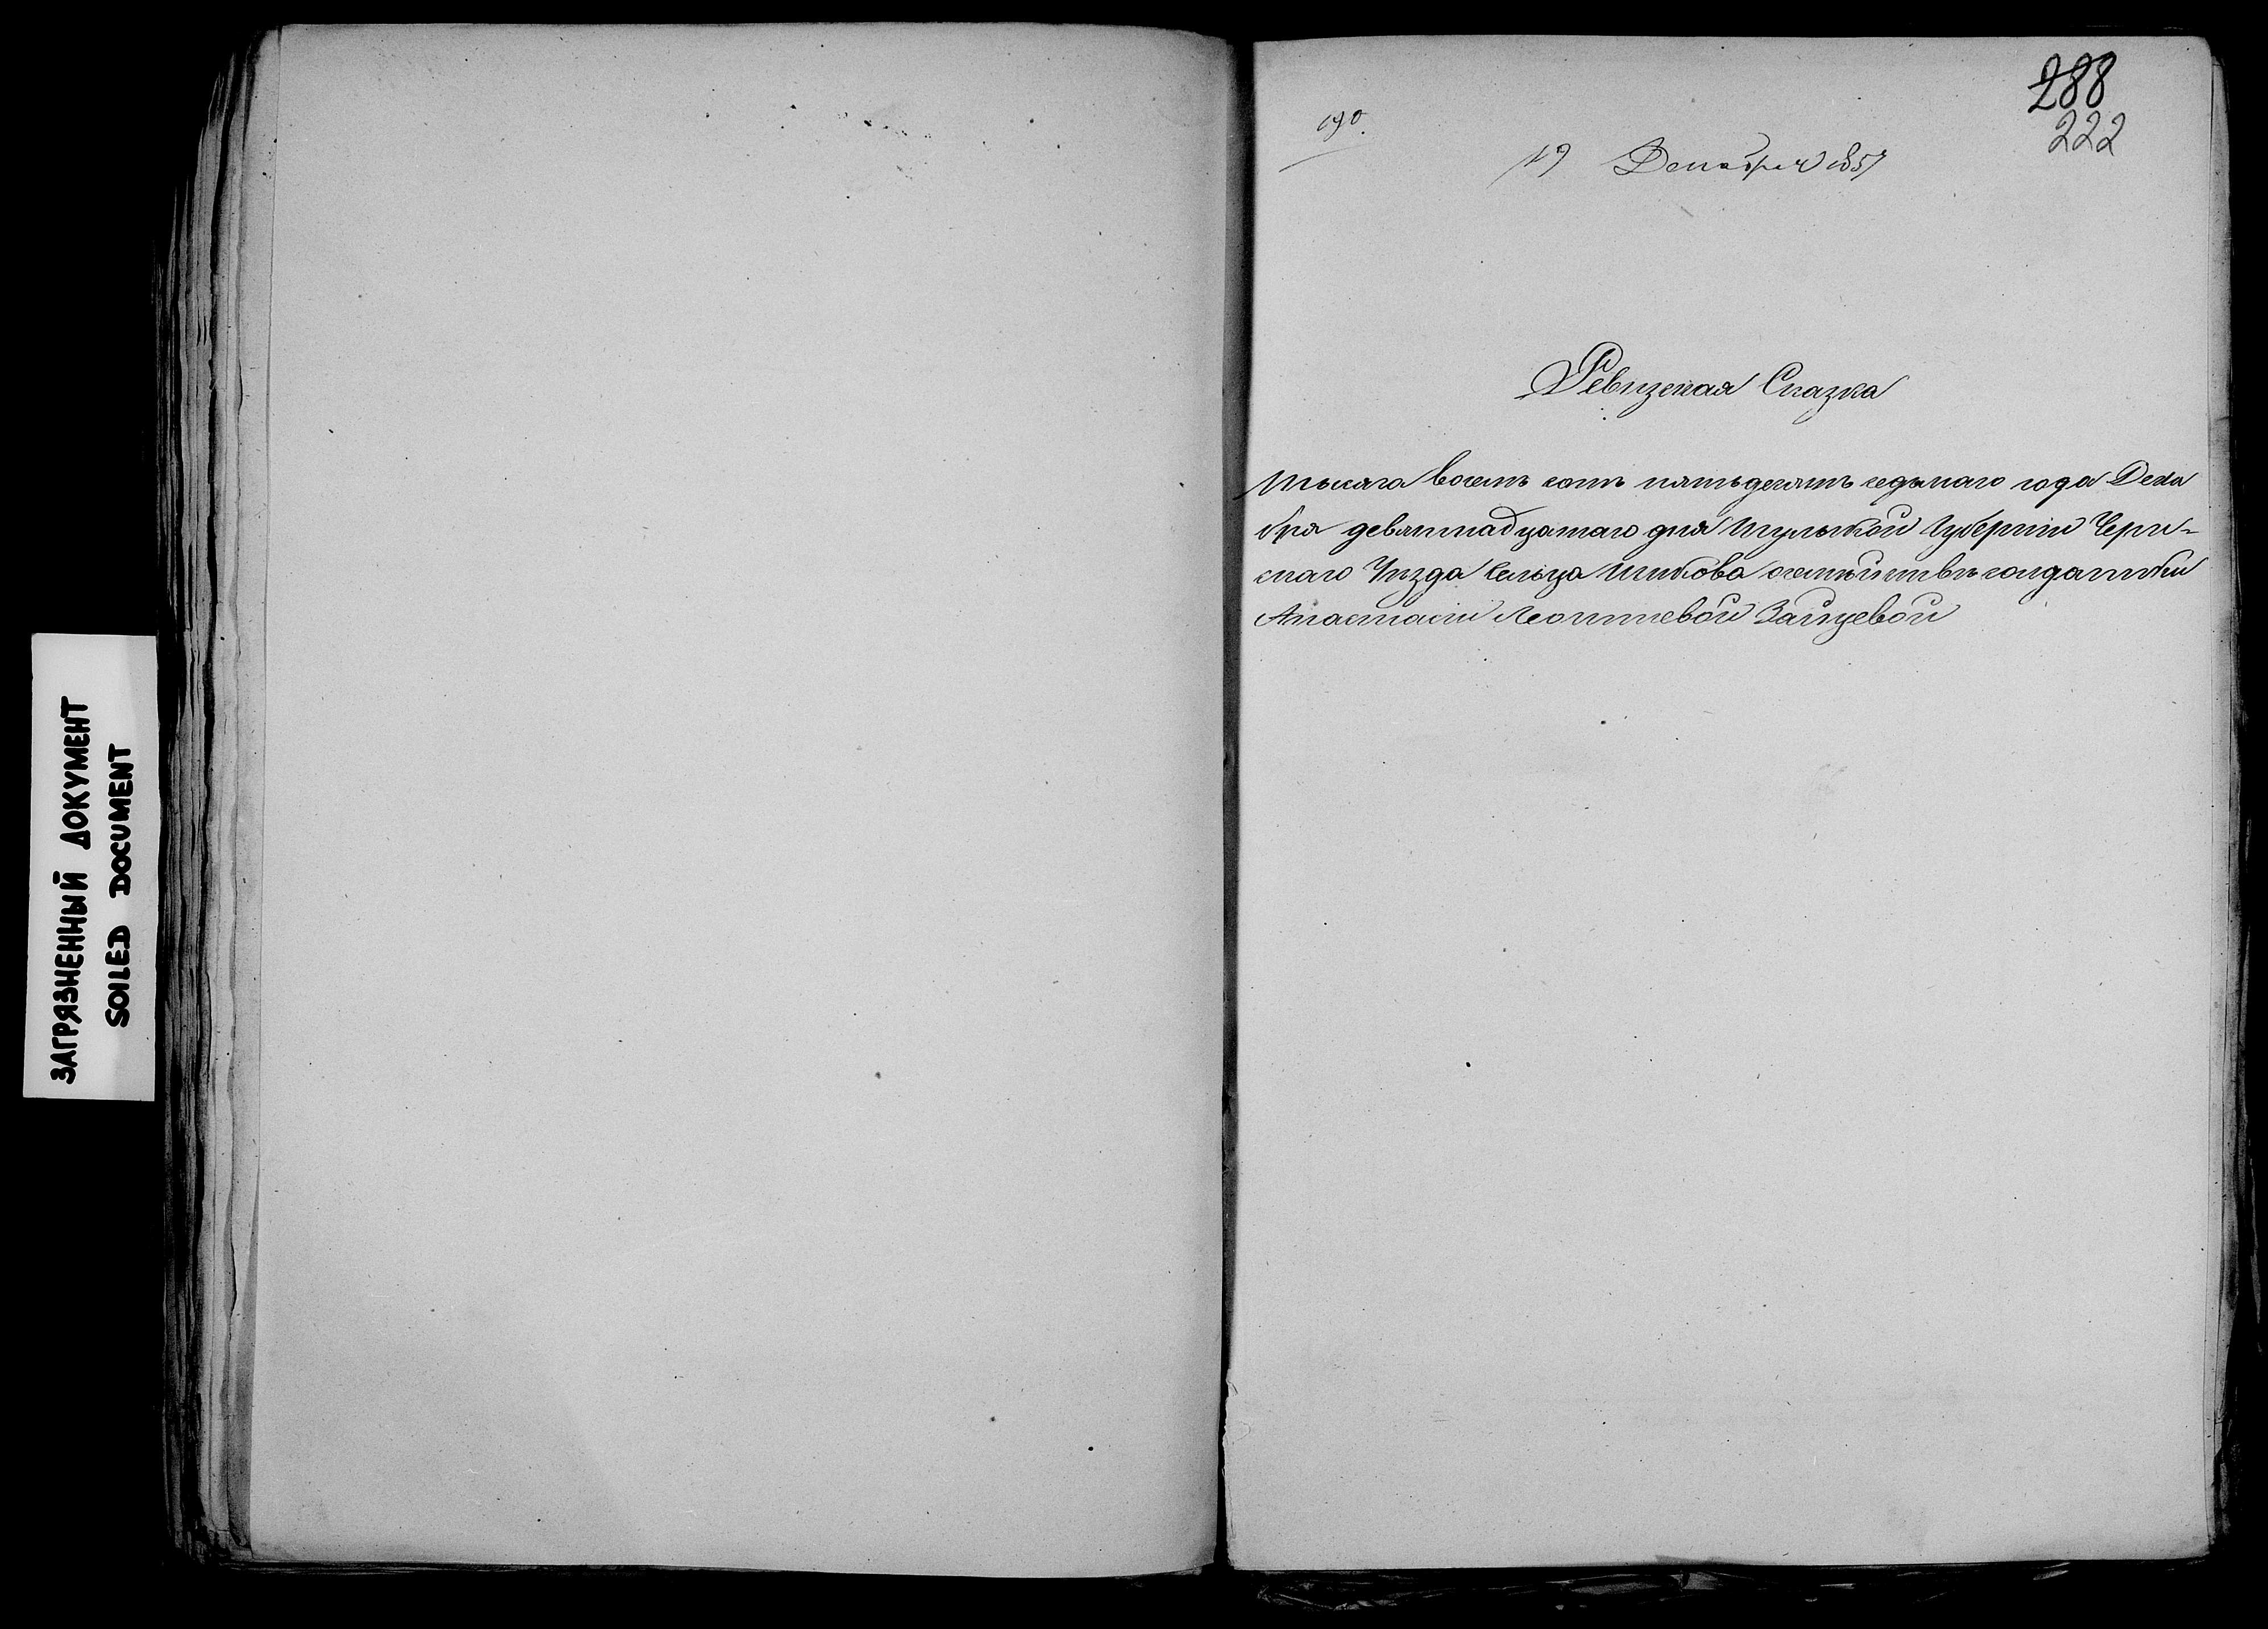 ЗАГРЯЗНЕННЫЙ ДОКУМЕНТ
SOILED DOCUMENT
288
222
190.
19 Декабря 1857
Ревизская Сказка
Тысяча восемь сотъ пятьдесятъ седьмаго года Дека
бря девятнадцатаго дня Тульской Губерніи Черн-
скаго Уѣзда сельца солдатки
Анастасіи Леонтьевой Зайцевой